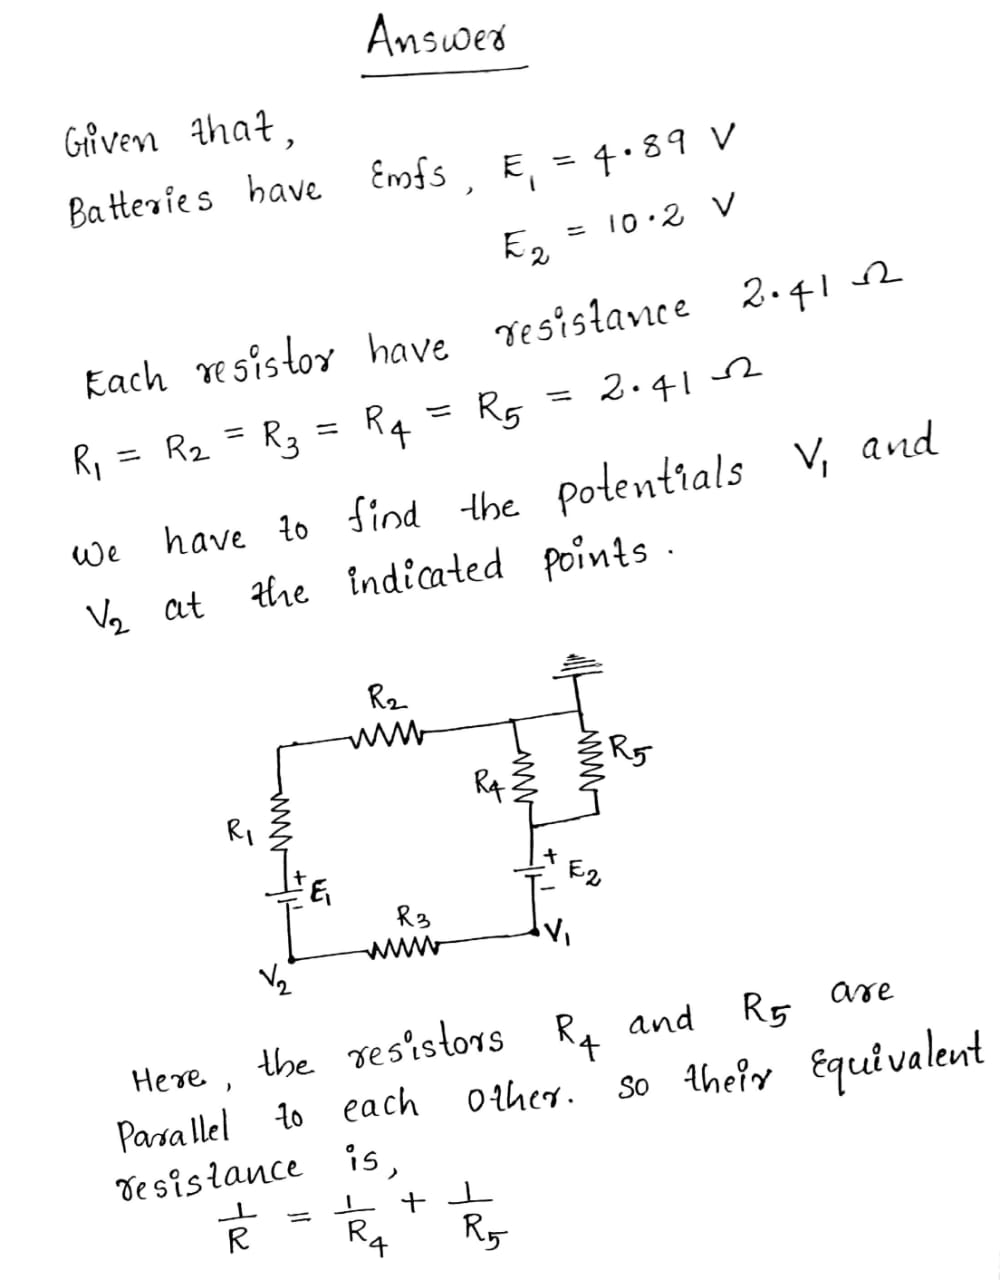 Answer
Given that,
Batteries have Emfs, E₁ = 4.89 V
E₂ = 10.2 V
Each resistor have resistance 2.41 Ω
R₁ = R₂ = R₃ = R₄ = R₅ = 2.41 Ω
We have to find the potentials V₁ and
V₂ at the indicated points.
R₂
R₅
R₄
R₁
+ E₁
-
+ E₂
-
R₃
V₁
V₂
Here, the resistors R₄ and R₅ are
Parallel to each other. So their Equivalent
resistance is,
1/R = 1/R₄ + 1/R₅